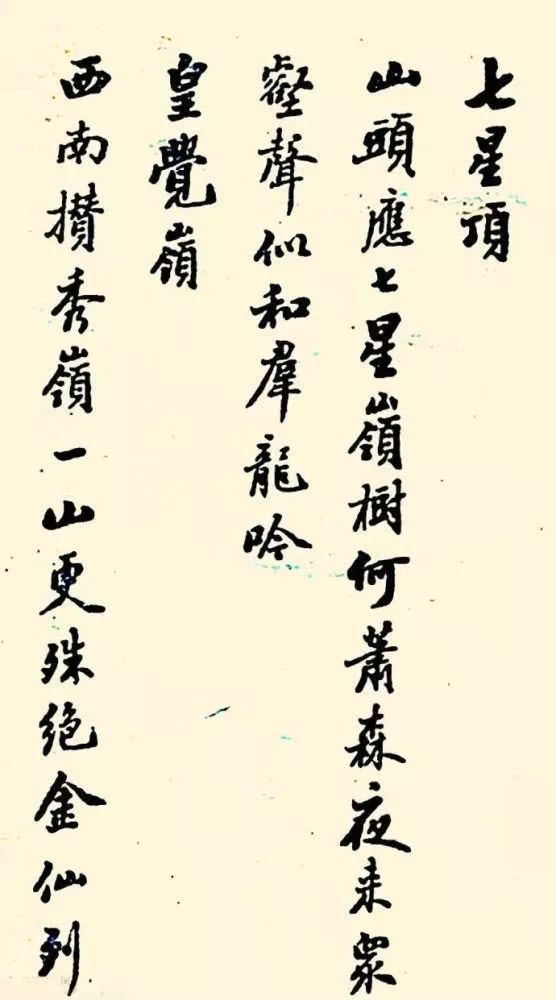 七星頂
山頭應七星嶺樹何蕭森夜来衆
壑聲似和羣龍吟
皇覺嶺
西南攅秀嶺一山更殊絶金仙到